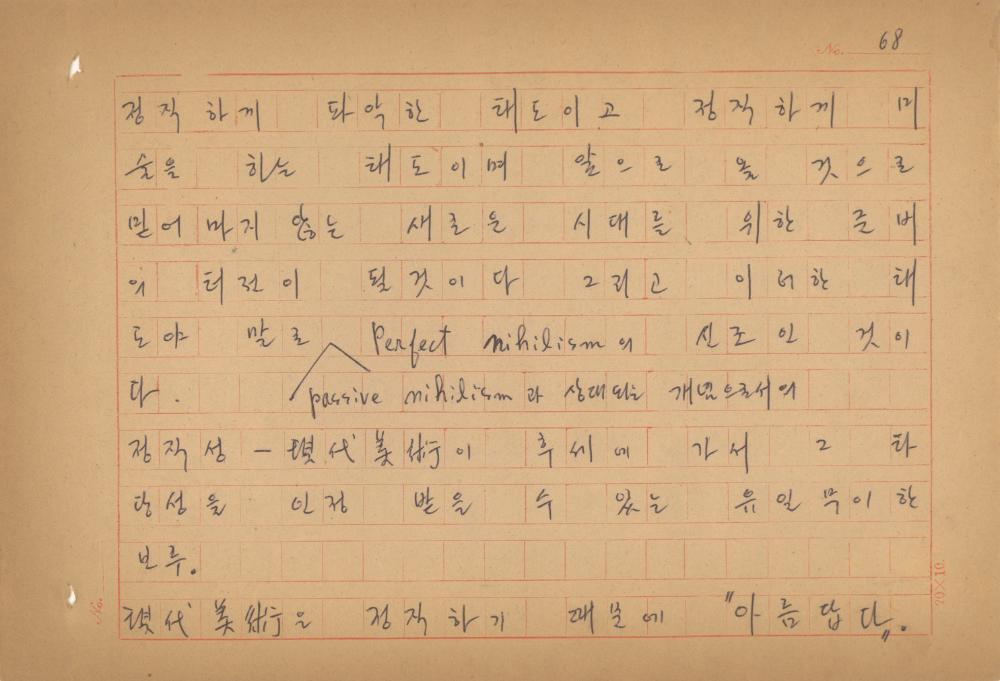 No. 68
정직하게 파악한 태도이고 정직하게 미
술을 하는 태도이며 앞으로 올 것으로
믿어 마지 않는 새로운 시대를 위한 준비
의 터전이 될것이다 그리고 이러한 태
도야 말로 Perfect nihilism의 신조인 것이
다. passive nihilism과 상대되는 개념으로서의
정직성 — 現代美術이 후세에 가서 그 타
당성을 인정 받을 수 있는 유일무이한
보루.
現代美術은 정직하기 때문에 "아름답다".
No.
20×10